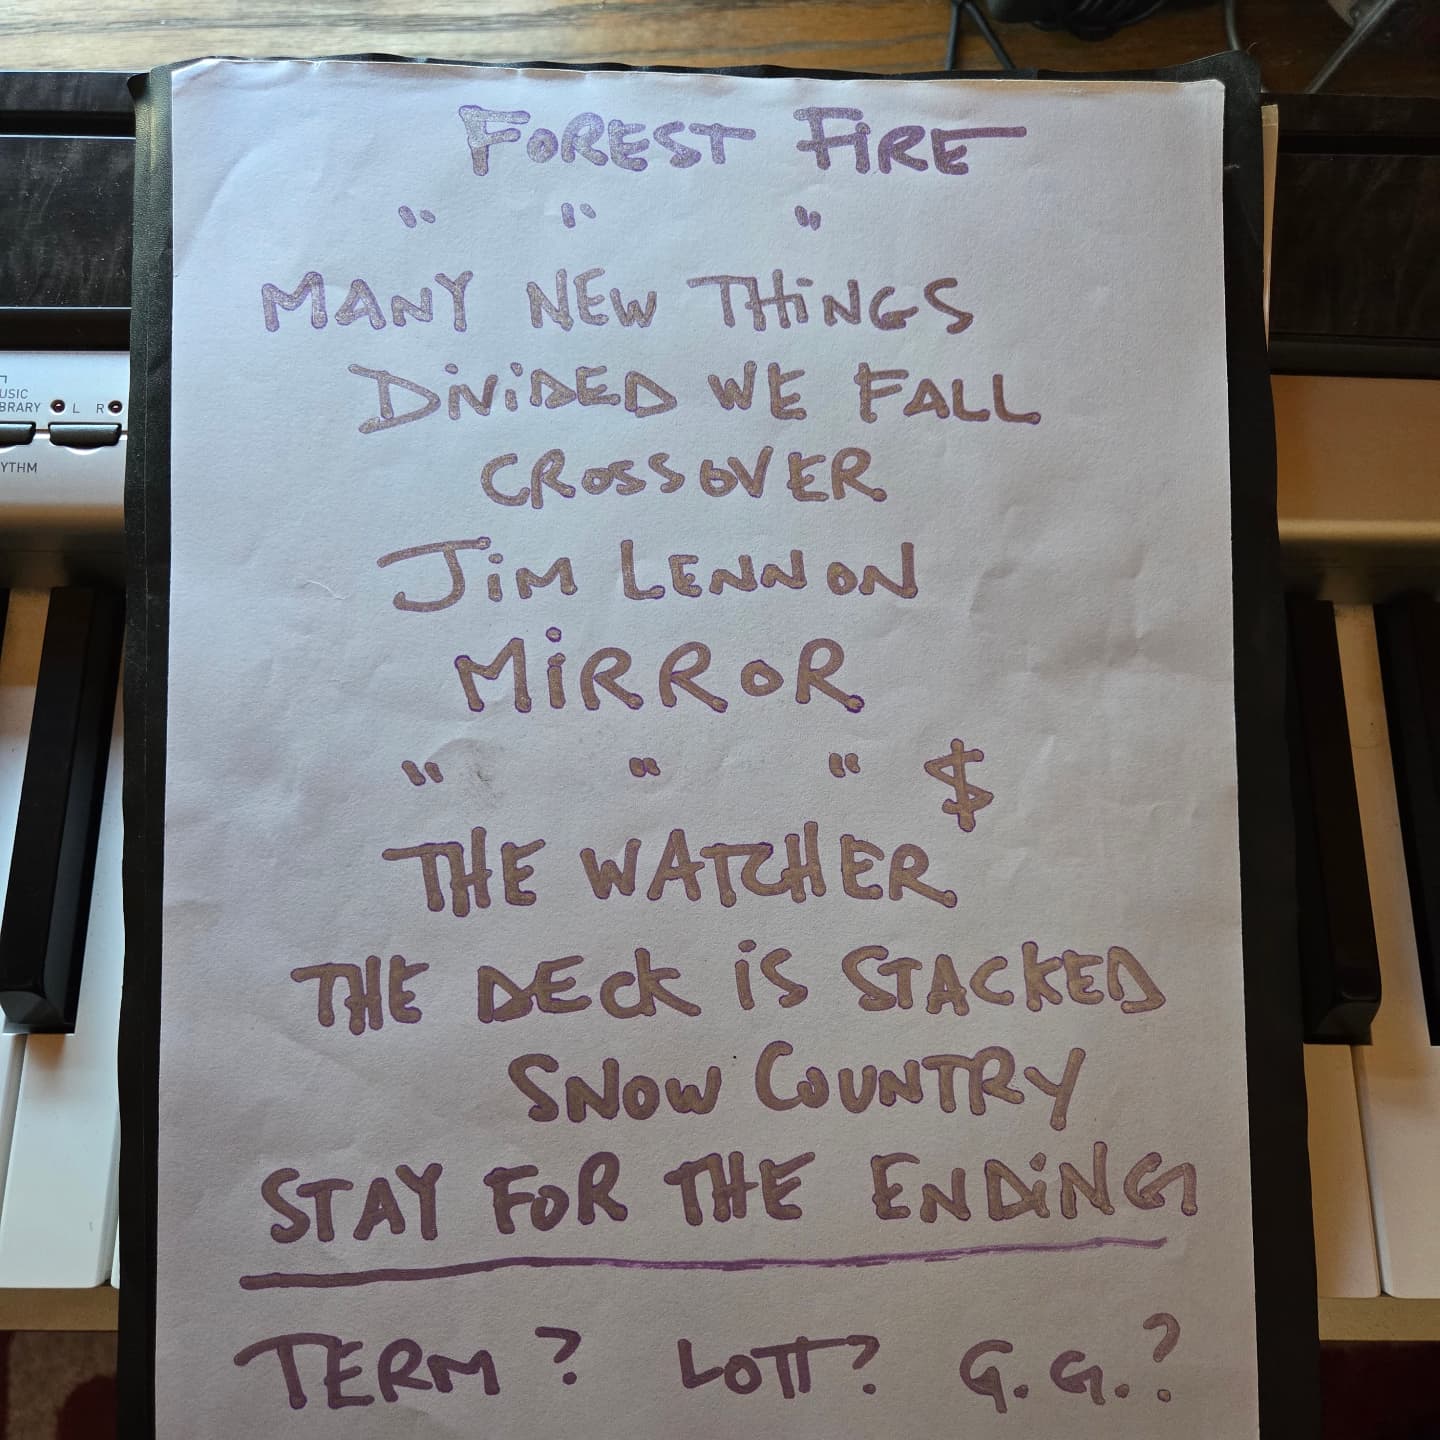 FOREST FIRE
" " "
MANY NEW THINGS
DIVIDED WE FALL
CROSSOVER
JIM LENNON
MIRROR
" " " $
THE WATCHER
THE DECK IS STACKED
SNOW COUNTRY
STAY FOR THE ENDING
TERM? LOTT? G.G.?
USIC
BRARY L R
YTHM